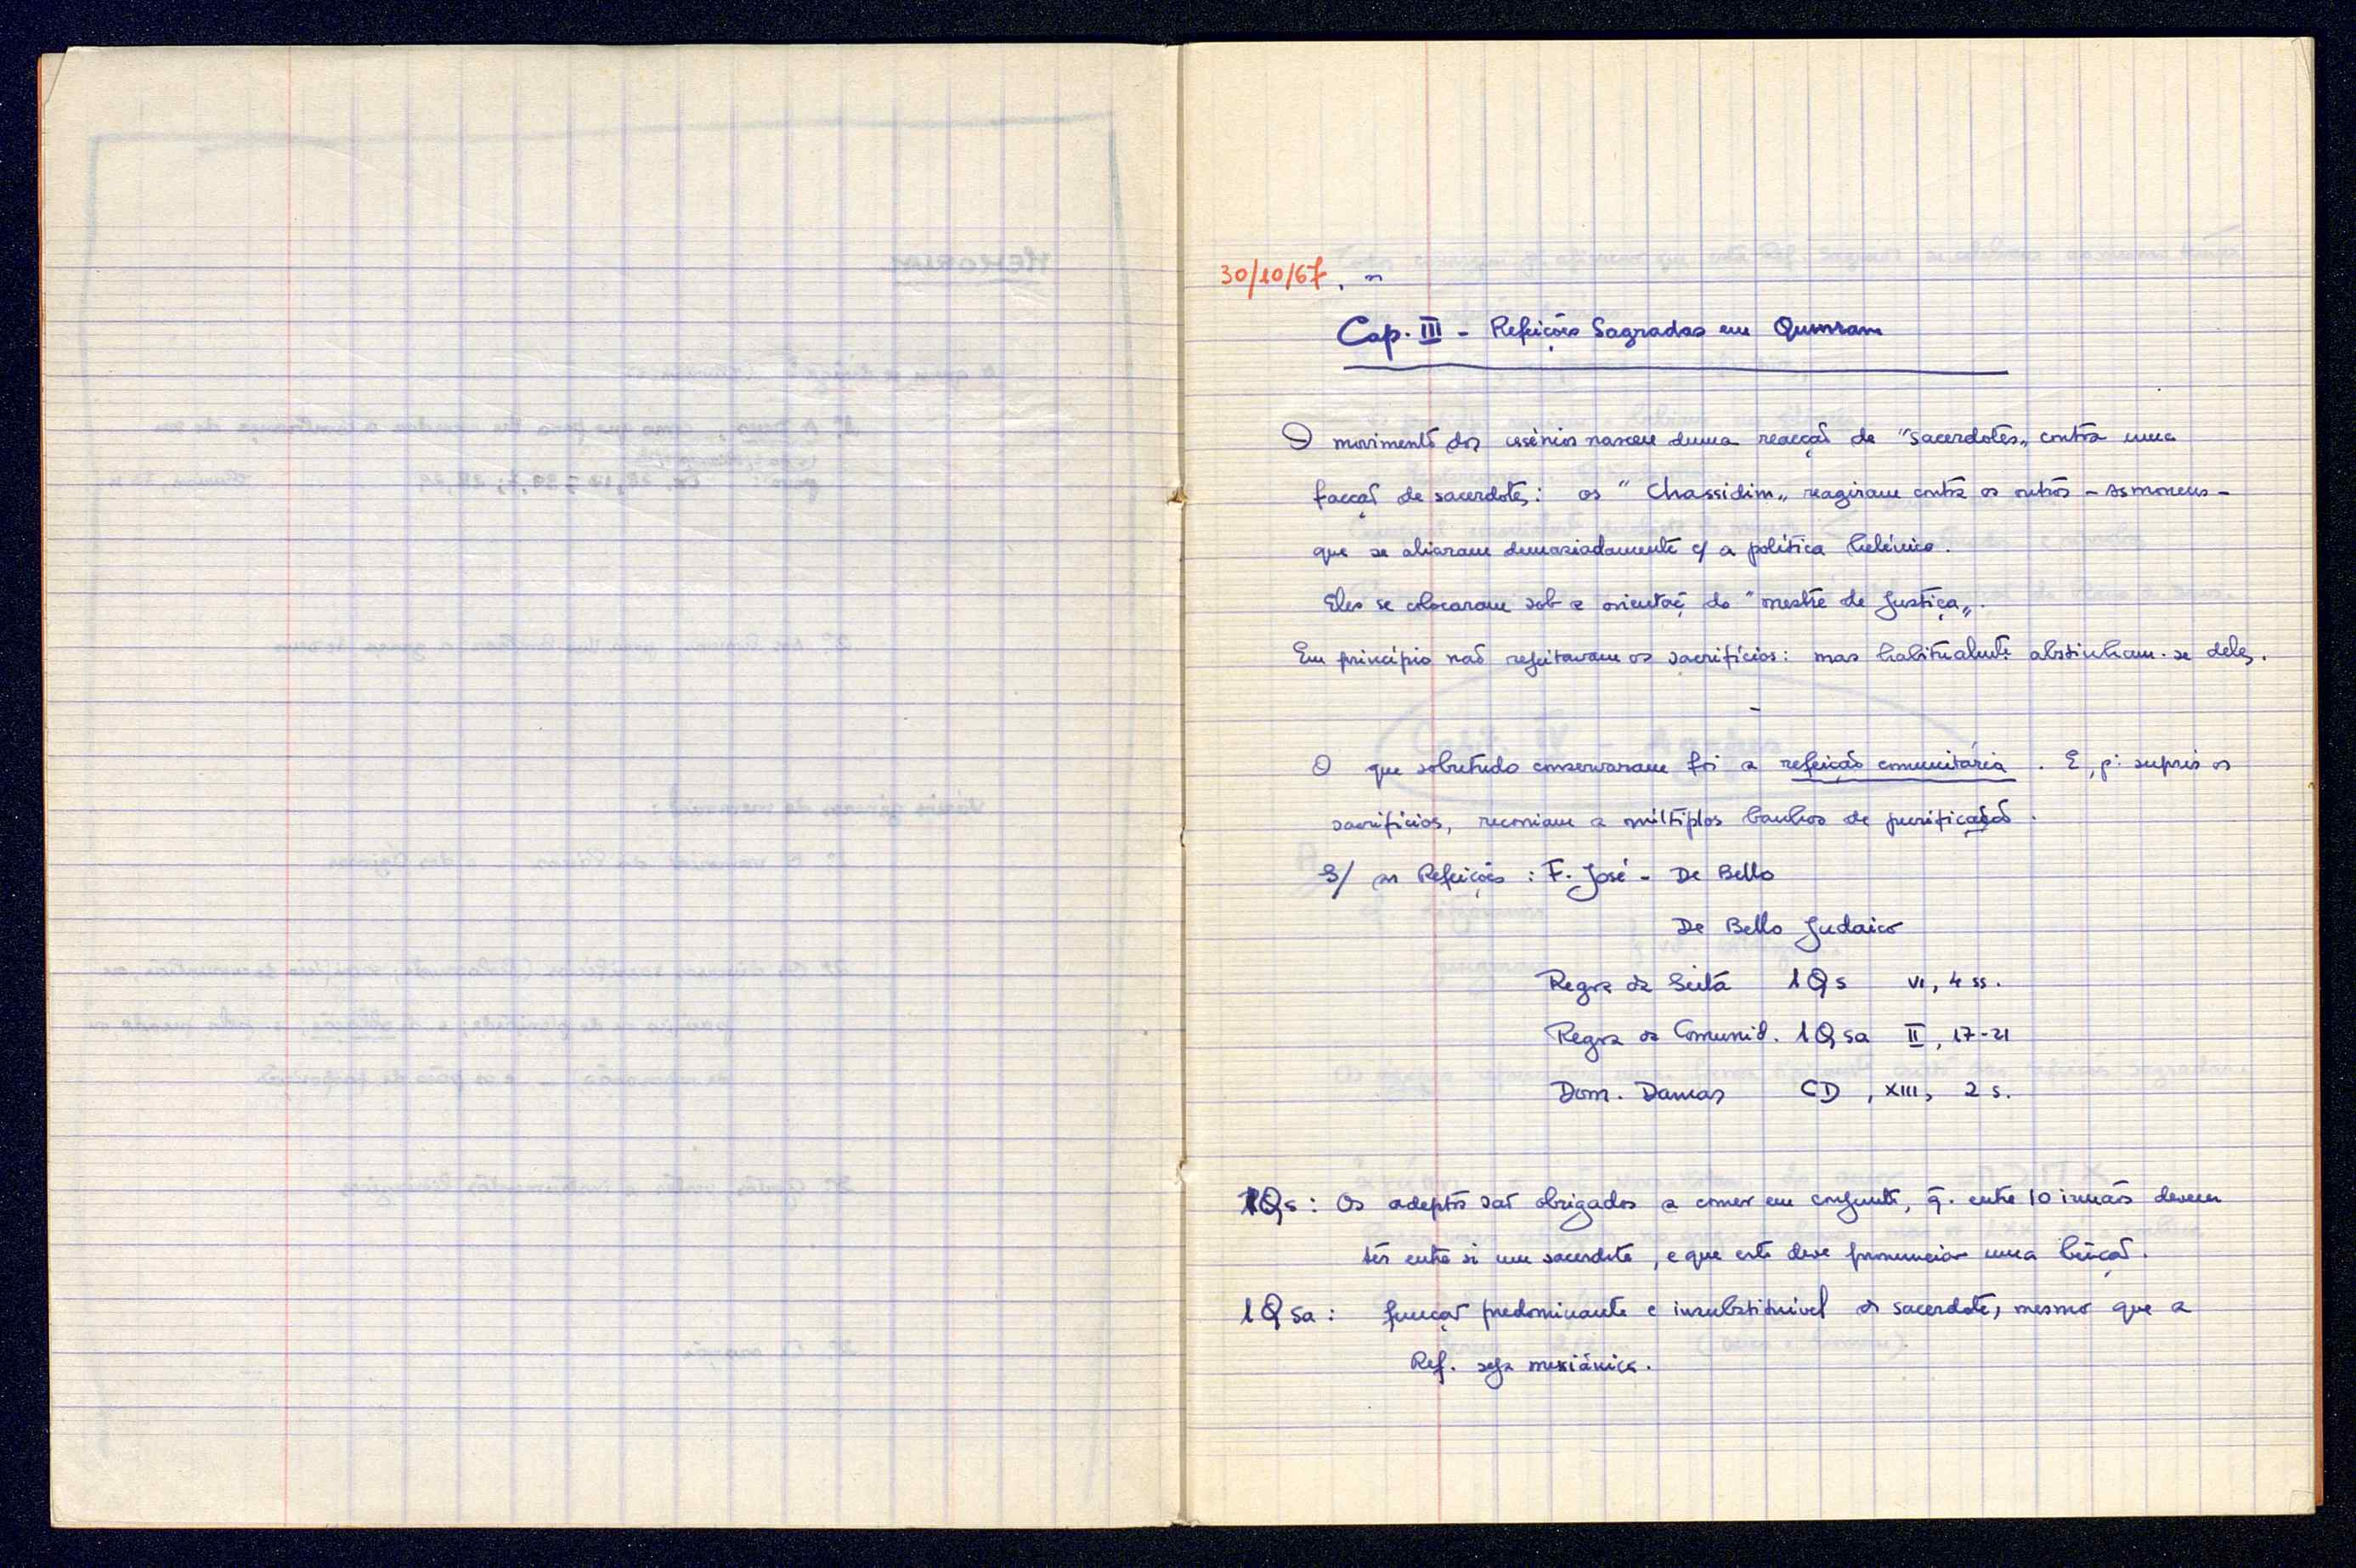 30/10/67.
Cap. III - Refeições Sagradas em Qumram
O movimento dos essénios nasceu duma reacção de "sacerdotes„ contra uma
facção de sacerdotes: os "Chassidim„ reagiram contra os outros - Asmoneus -
que se aliaram demasiadamente c/ a política helénica.
Eles se colocaram sob a orientaç̃ do "mestre de Justiça„.
Em princípio não rejeitavam os sacrifícios: mas habitualmte abstinham-se deles.
-
O que sobretudo conservaram foi a refeição comunitária. E, p: suprir os
sacrifícios, recorriam a múltiplos banhos de purificação.
S/ as Refeições: F. José - De Bello
De Bello Judaico
Regra da Seita 1QS VI, 4 ss.
Regra da Comunid. 1QSa II, 17-21
Dom. Damas CD, XIII, 2 s.
1QS: Os adeptos são obrigados a comer em conjunto, q̃. entre 10 irmãos devem
ter entre si um sacerdote, e que este deve pronunciar uma bênção.
1QSa: função predominante e insubstituível do sacerdote, mesmo que a
Ref. seja messiânica.